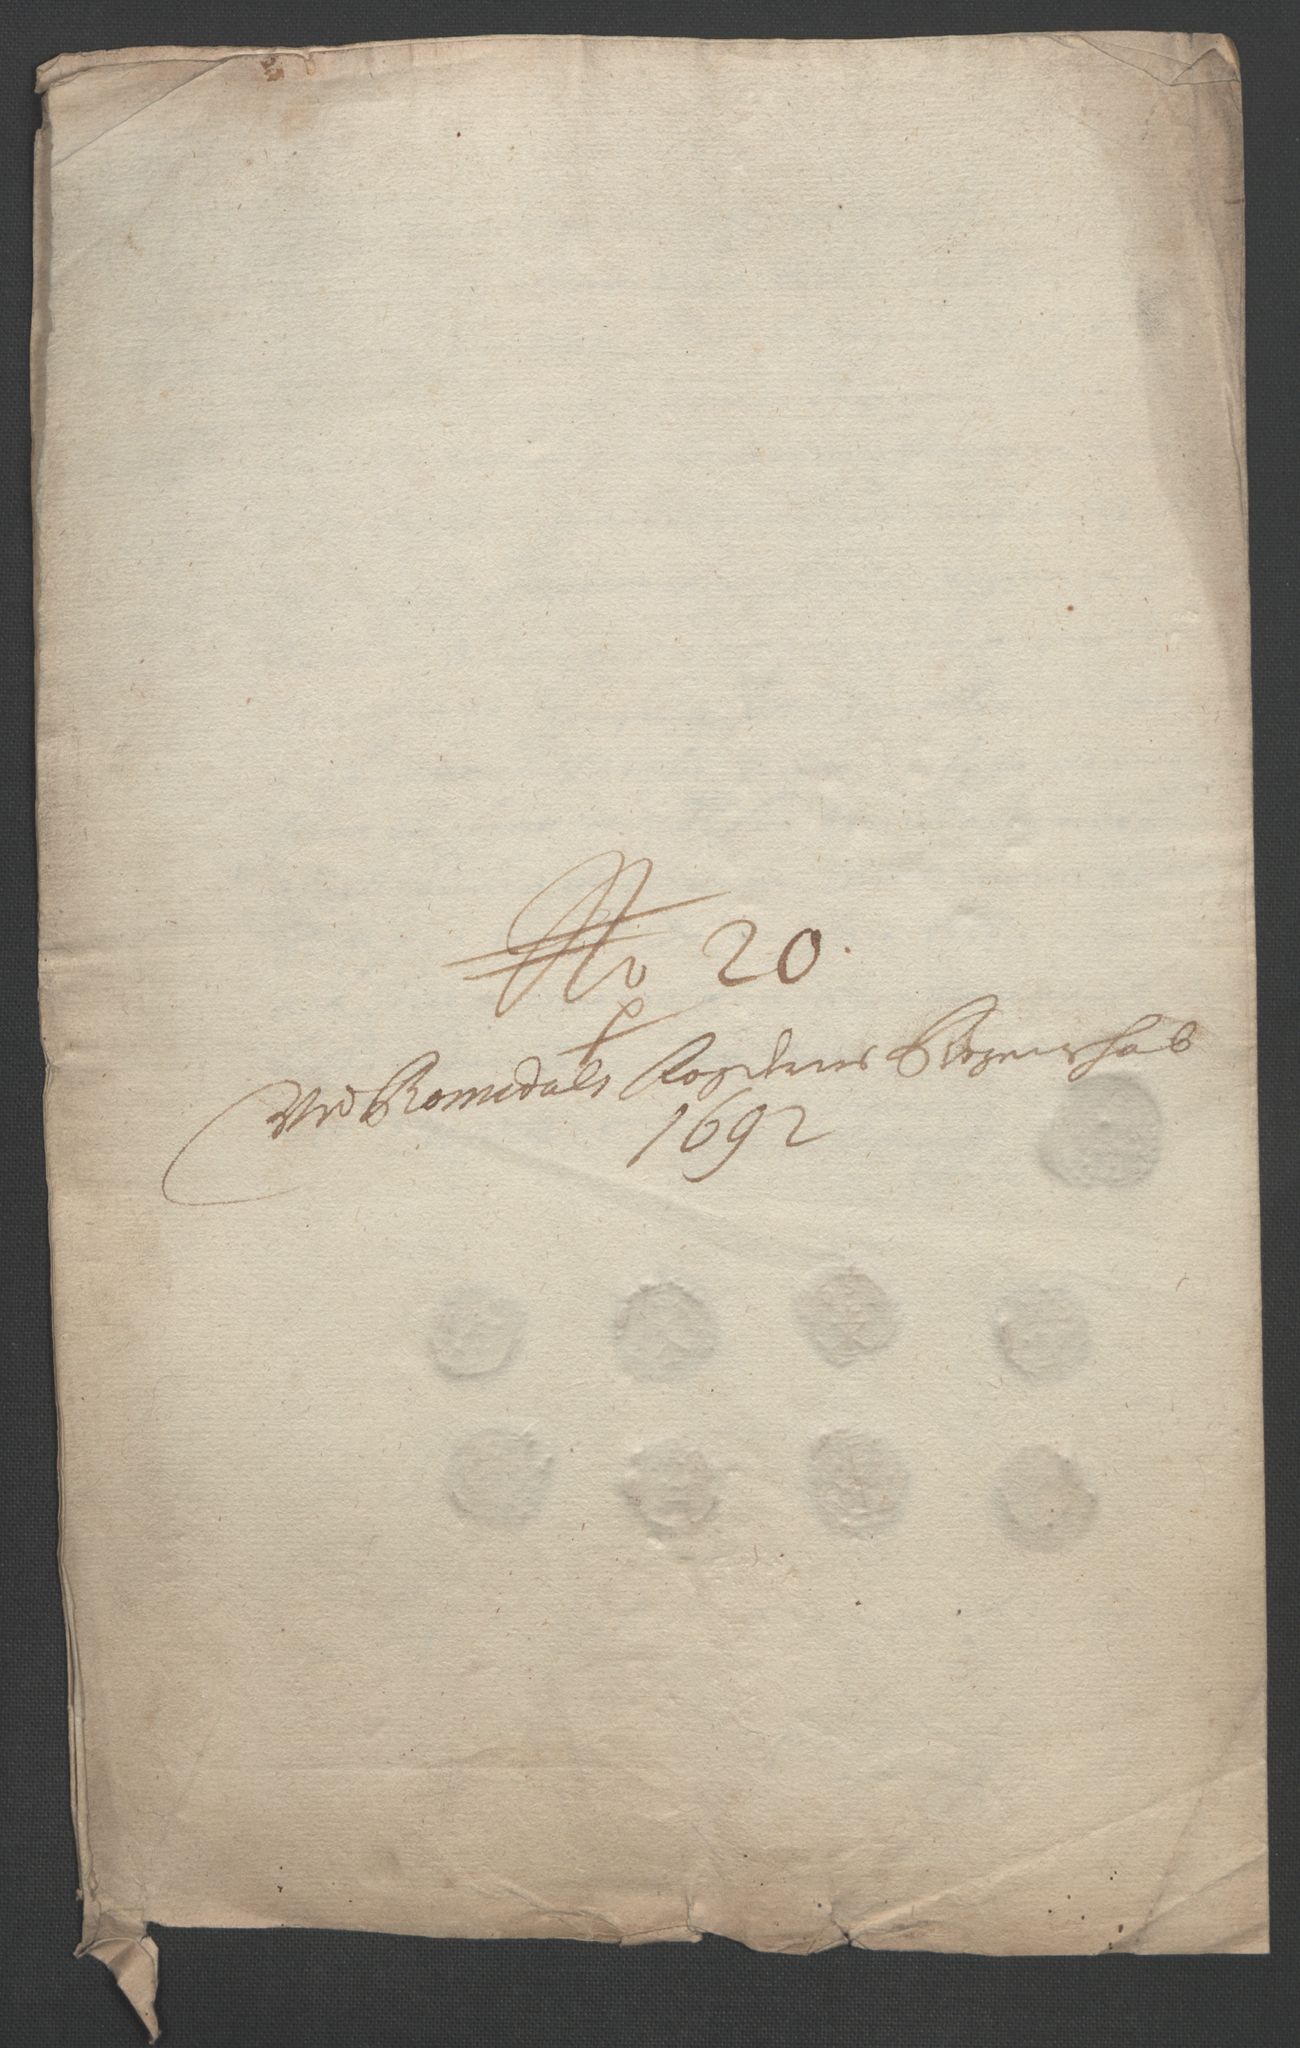 No 20.
Ved Romsdals Fogderies Regenschab
1692